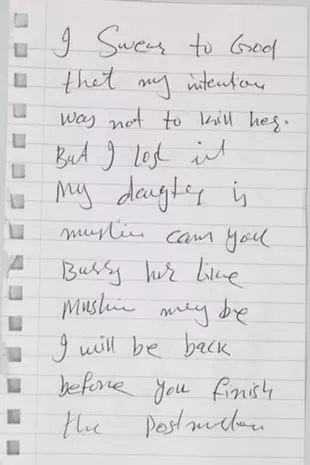 I Swear to God
that my intention
was not to kill her.
But I lost it
My daughter is
muslim can you
Bussy her like
Mushin may be
I will be back
before you finish
the Postmortem